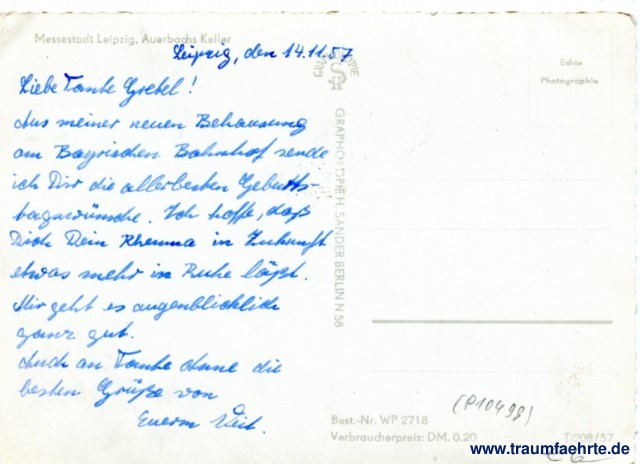 Messestadt Leipzig, Auerbachs Keller
Leipzig, den 14.11.57
Liebe Tante Gretel!
Aus meiner neuen Behausung
am Bayrischen Bahnhof sende
ich Dir die allerbesten Geburts-
tagswünsche. Ich hoffe, daß
Dich Dein Rheuma in Zukunft
etwas mehr in Ruhe läßt.
Mir geht es augenblicklich
ganz gut.
Auch an Tante Anne die
besten Grüße von
Euerm Veit.
GRAPHOKOPIE H. SANDER BERLIN N 58
Echte
Photographie
Best.-Nr. WP 2718
Verbraucherpreis: DM. 0.20
(P10498)
T 208/57
www.traumfaehrte.de